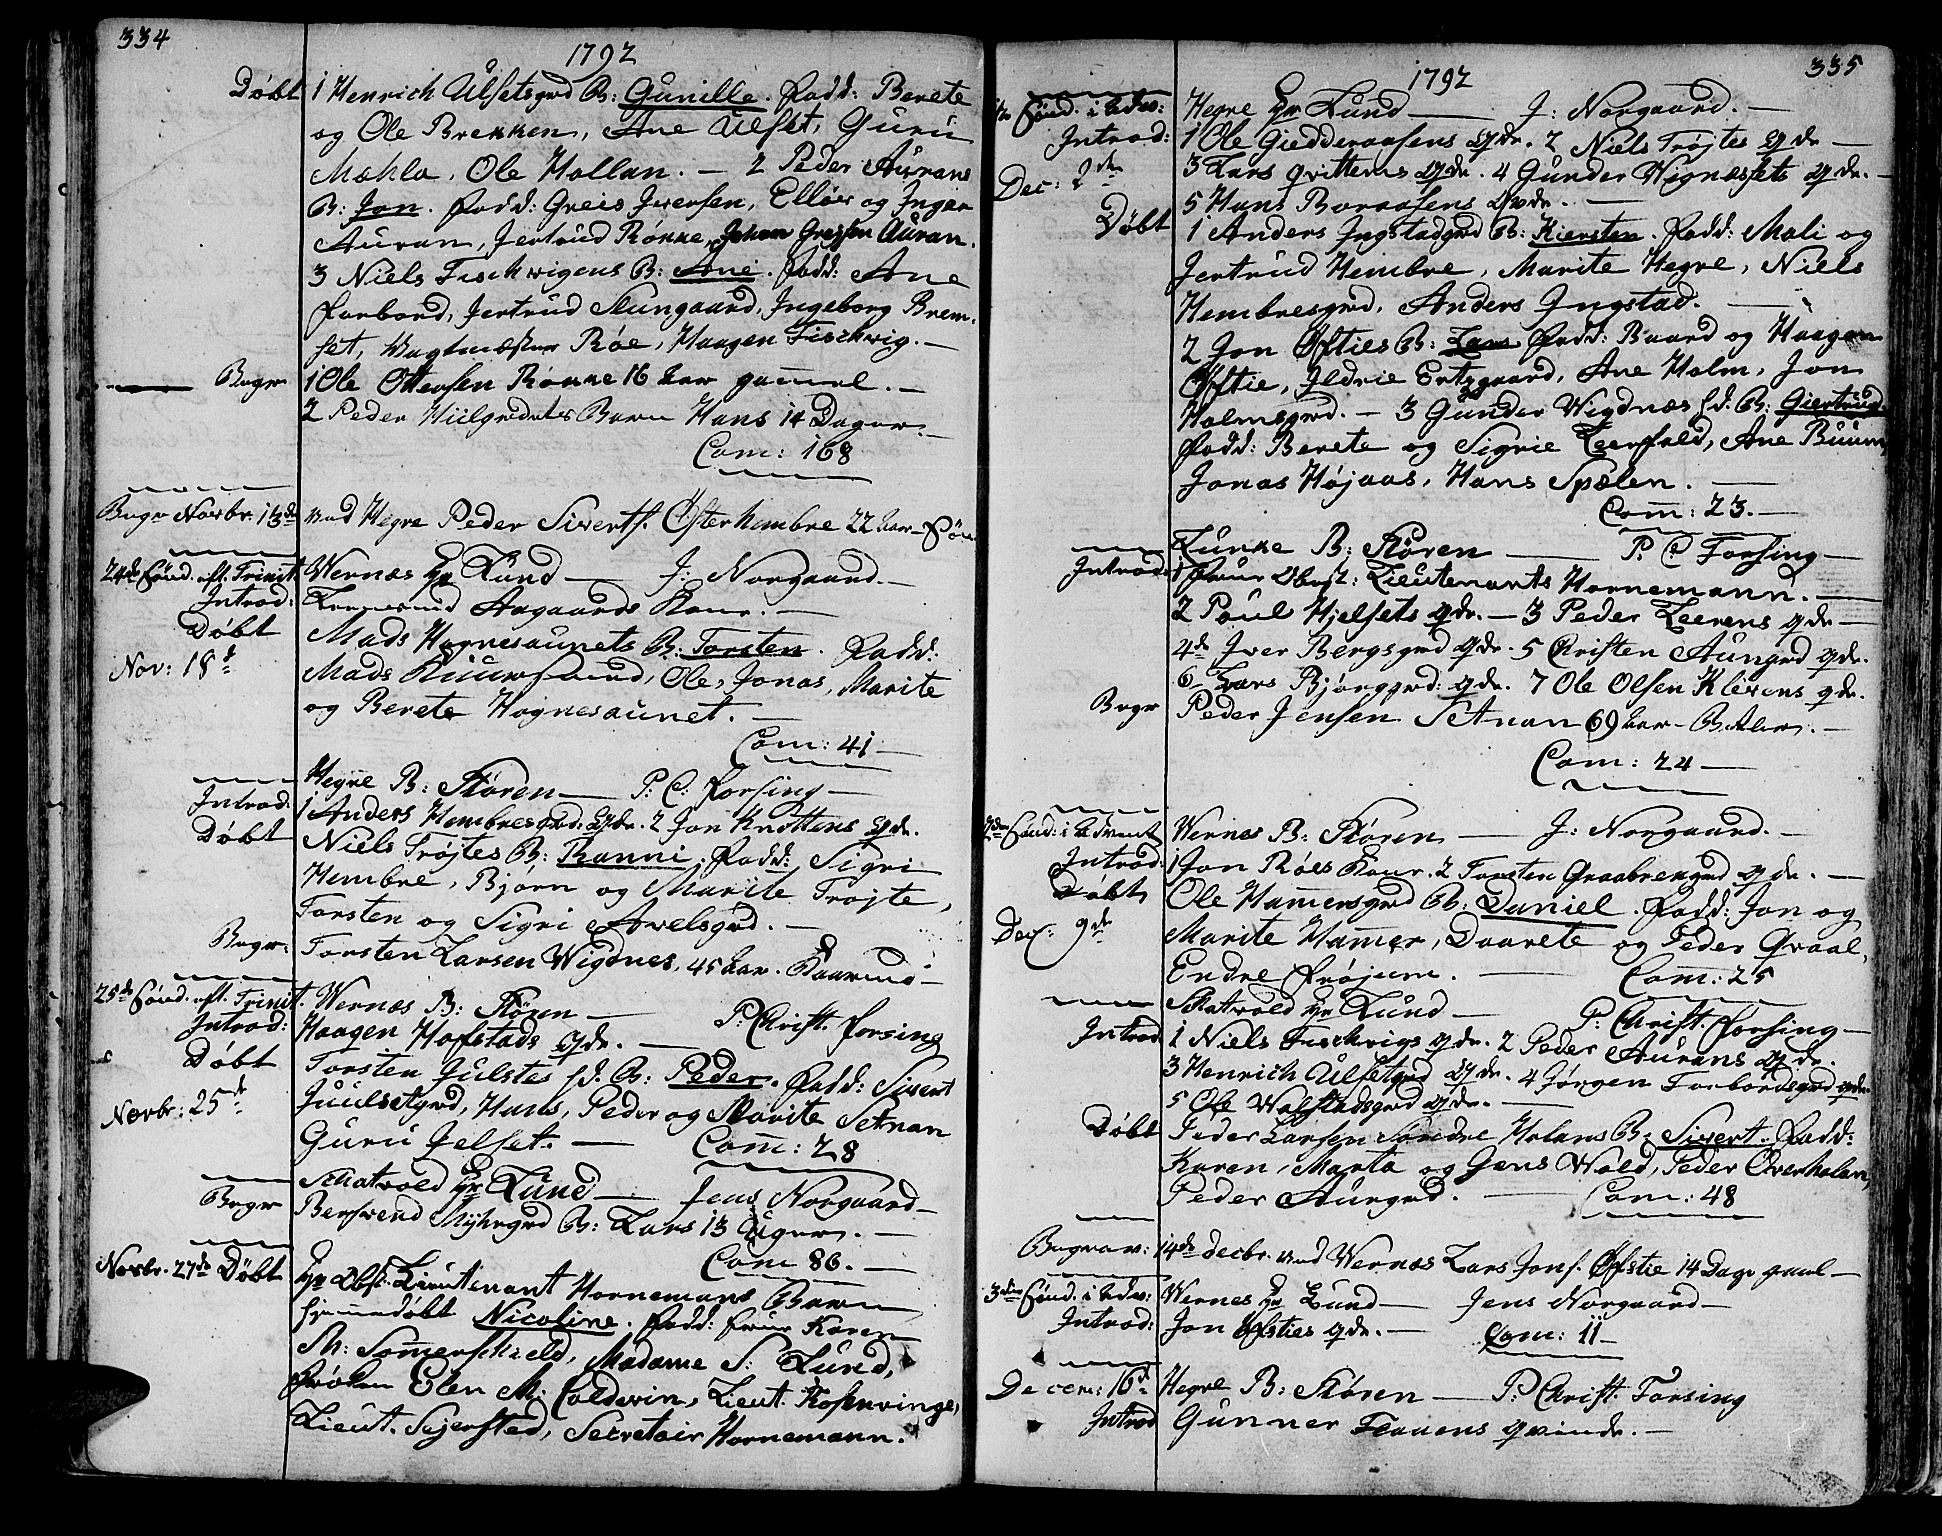 334
1792
Døbt 1 Henrich Ulsetsgrd B: Gunille. Fadd: Berete
og Ole Brekken, Ane Ulset, Guru
Mæhla, Ole Hollan. — 2 Peder Aurans
B: Jon. Fadd: Greis Iversen, Elløv og Inger
Auran, Jertrud Rønne, Johan Gressen Auran.
3 Niels Fischvigens B: Ane. Fadd: Ane
Forbord, Jertrud Stungaard, Ingeborg Brem-
set, Vagtmester Røe, Haagen Fischvig. —
Begr 1 Ole Ottersen Rønne 16 Aar gammel. —
2 Peder Hiilgrdets Barn Hans 14 Dager. —
Com: 168
Begr Novbr. 13de ved Hegre Peder Siverts. Østerhembre 22 Aar
24de Sønd. eft. Trinit. Wernæs Hr Lund — J: Norgaard. —
Introd: Aagaards Kone. —
Døbt Mads Hognesaunets B: Torsten. Fadd:
Nov: 18d Mads Ole, Jonas, Marite
og Berete Hognesaunet. —
Com: 41 —
Hegre B: Støren — P: C: Forsing —
Introd: 1 Anders Hembresgrd: Qde. 2 Jon Knottens Qde.
Døbt Niels Trøjtes B: Ranni. Fadd: Sigri
Hembre, Bjørn og Marite Trøjte,
Torsten og Sigri Avelsgrd. —
Begr: Torsten Larsen Wigdnes, 45 Aar.
25de Sønd. eft. Trinit. Wernæs B: Støren — P: Christ. Forsing
Introd: Haagen Hofstads Qde. —
Døbt Torsten Julstes sd. B: Peder. Fadd: Sivert
Novbr: 25de Juulsetgrd, Hans, Peder og Marite Setnan
Guru Jelset. — Com: 28
Skatvold Hr Lund — Jens Norgaard —
Begr Bersvend Myhrgrd B: Lars 13 Uger. —
Com 86. —
Novbr. 27de Døbt Hr Obst. Lieutenant Hornemans Barn
hjemmedøbt Nicoline. Fadd: Frue Karen
M: Somerschield, Madame S: Lund,
Frøken Elen M: Coldevin, Lieut. Rosenvinge,
Lieut. Sejersted, Secretair Hornemann.
335
1792
1te Sønd. i Adv: Hegre Hr Lund — J: Norgaard. —
Introd: 1 Ole Giedderaasens Qde. 2 Niels Trøjtes Qde —
Dec: 2de 3 Lars Qvittems Qde. 4 Gunder Wignæsets Qde. —
5 Hans Boraasens Qde. —
Døbt 1 Anders Ingstadgrd B: Kiersten. Fadd: Mali og
Jertrud Hembre, Marite Hegre, Niels
Hembresgrd, Anders Ingstad. —
2 Jon Øfsties B: Lars Fadd: Baard og Haagen
Øfstie, Ildrie Ertzgaard, Ane Holm, Jon
Holmsgrd. — 3 Gunder Wigdnæs sd. B: Giertrud.
Fadd: Berete og Sigrie Leerfald, Ane Buum,
Jonas Højaas, Hans Spælen. —
Com: 23. —
Lunke B: Støren — P. C. Forsing —
Introd: 1 Frue Obst: Lieutenants Hornemann. —
2 Poul Hjelsets Qde. — 3 Peder Leerens Qde —
4de Iver Bergsgrd Qde. 5 Christen Aungrd Qde.
6 Lars Bjørggrd: Qde. 7 Ole Olsen Klevens Qde.
Begr Peder Jensen Setnan 69 Aar —
Com: 24 —
2den Sønd: i Advent Wernæs B: Støren — J: Norgaard. —
Introd: 1 Jon Røes Kone. 2 Torsten Graabrengrd Qde. —
Døbt Ole Hammersgrd B: Daniel. Fadd: Jon og
Dec: 9de Marite Hammer, Daarete og Peder Graal,
Endre Frøjum. — Com: 25
Skatvold Hr Lund — P: Christ. Forsing —
Introd 1 Niels Fischvigs Qde. 2 Peder Aurans Qde.
3 Henrich Ulsetgrd Qde. 4 Jørgen Forbordsgrd Qde.
5 Ole Wolstadsgrd Qde. —
Døbt Peder Larsen Søndre Holans B: Sivert. Fadd:
Karen, Marta og Jens Wold, Peder Overholan,
Peder Aungrd. — Com: 48
Begrav: 14de decbr. ved Wernæs Lars Jons. Øfstie 14 Dage gaml —
3die Sønd. i Adv: Wernes Hr Lund — Jens Norgaard —
Introd: Jon Øfsties Qde. — Com: 11 —
Decem: 16d Hegre B: Støren — P: Christ. Forsing
Introd Gunner Flauens Qvinde. —